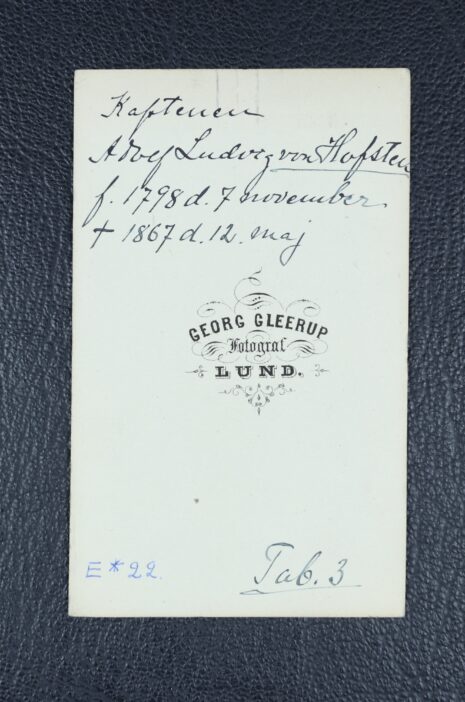 Kaptenen
Adolf Ludvig von Hofsten
f. 1798 d. 7 november
† 1867 d. 12. maj
GEORG GLEERUP
Fotograf
LUND.
E * 22.
Tab. 3